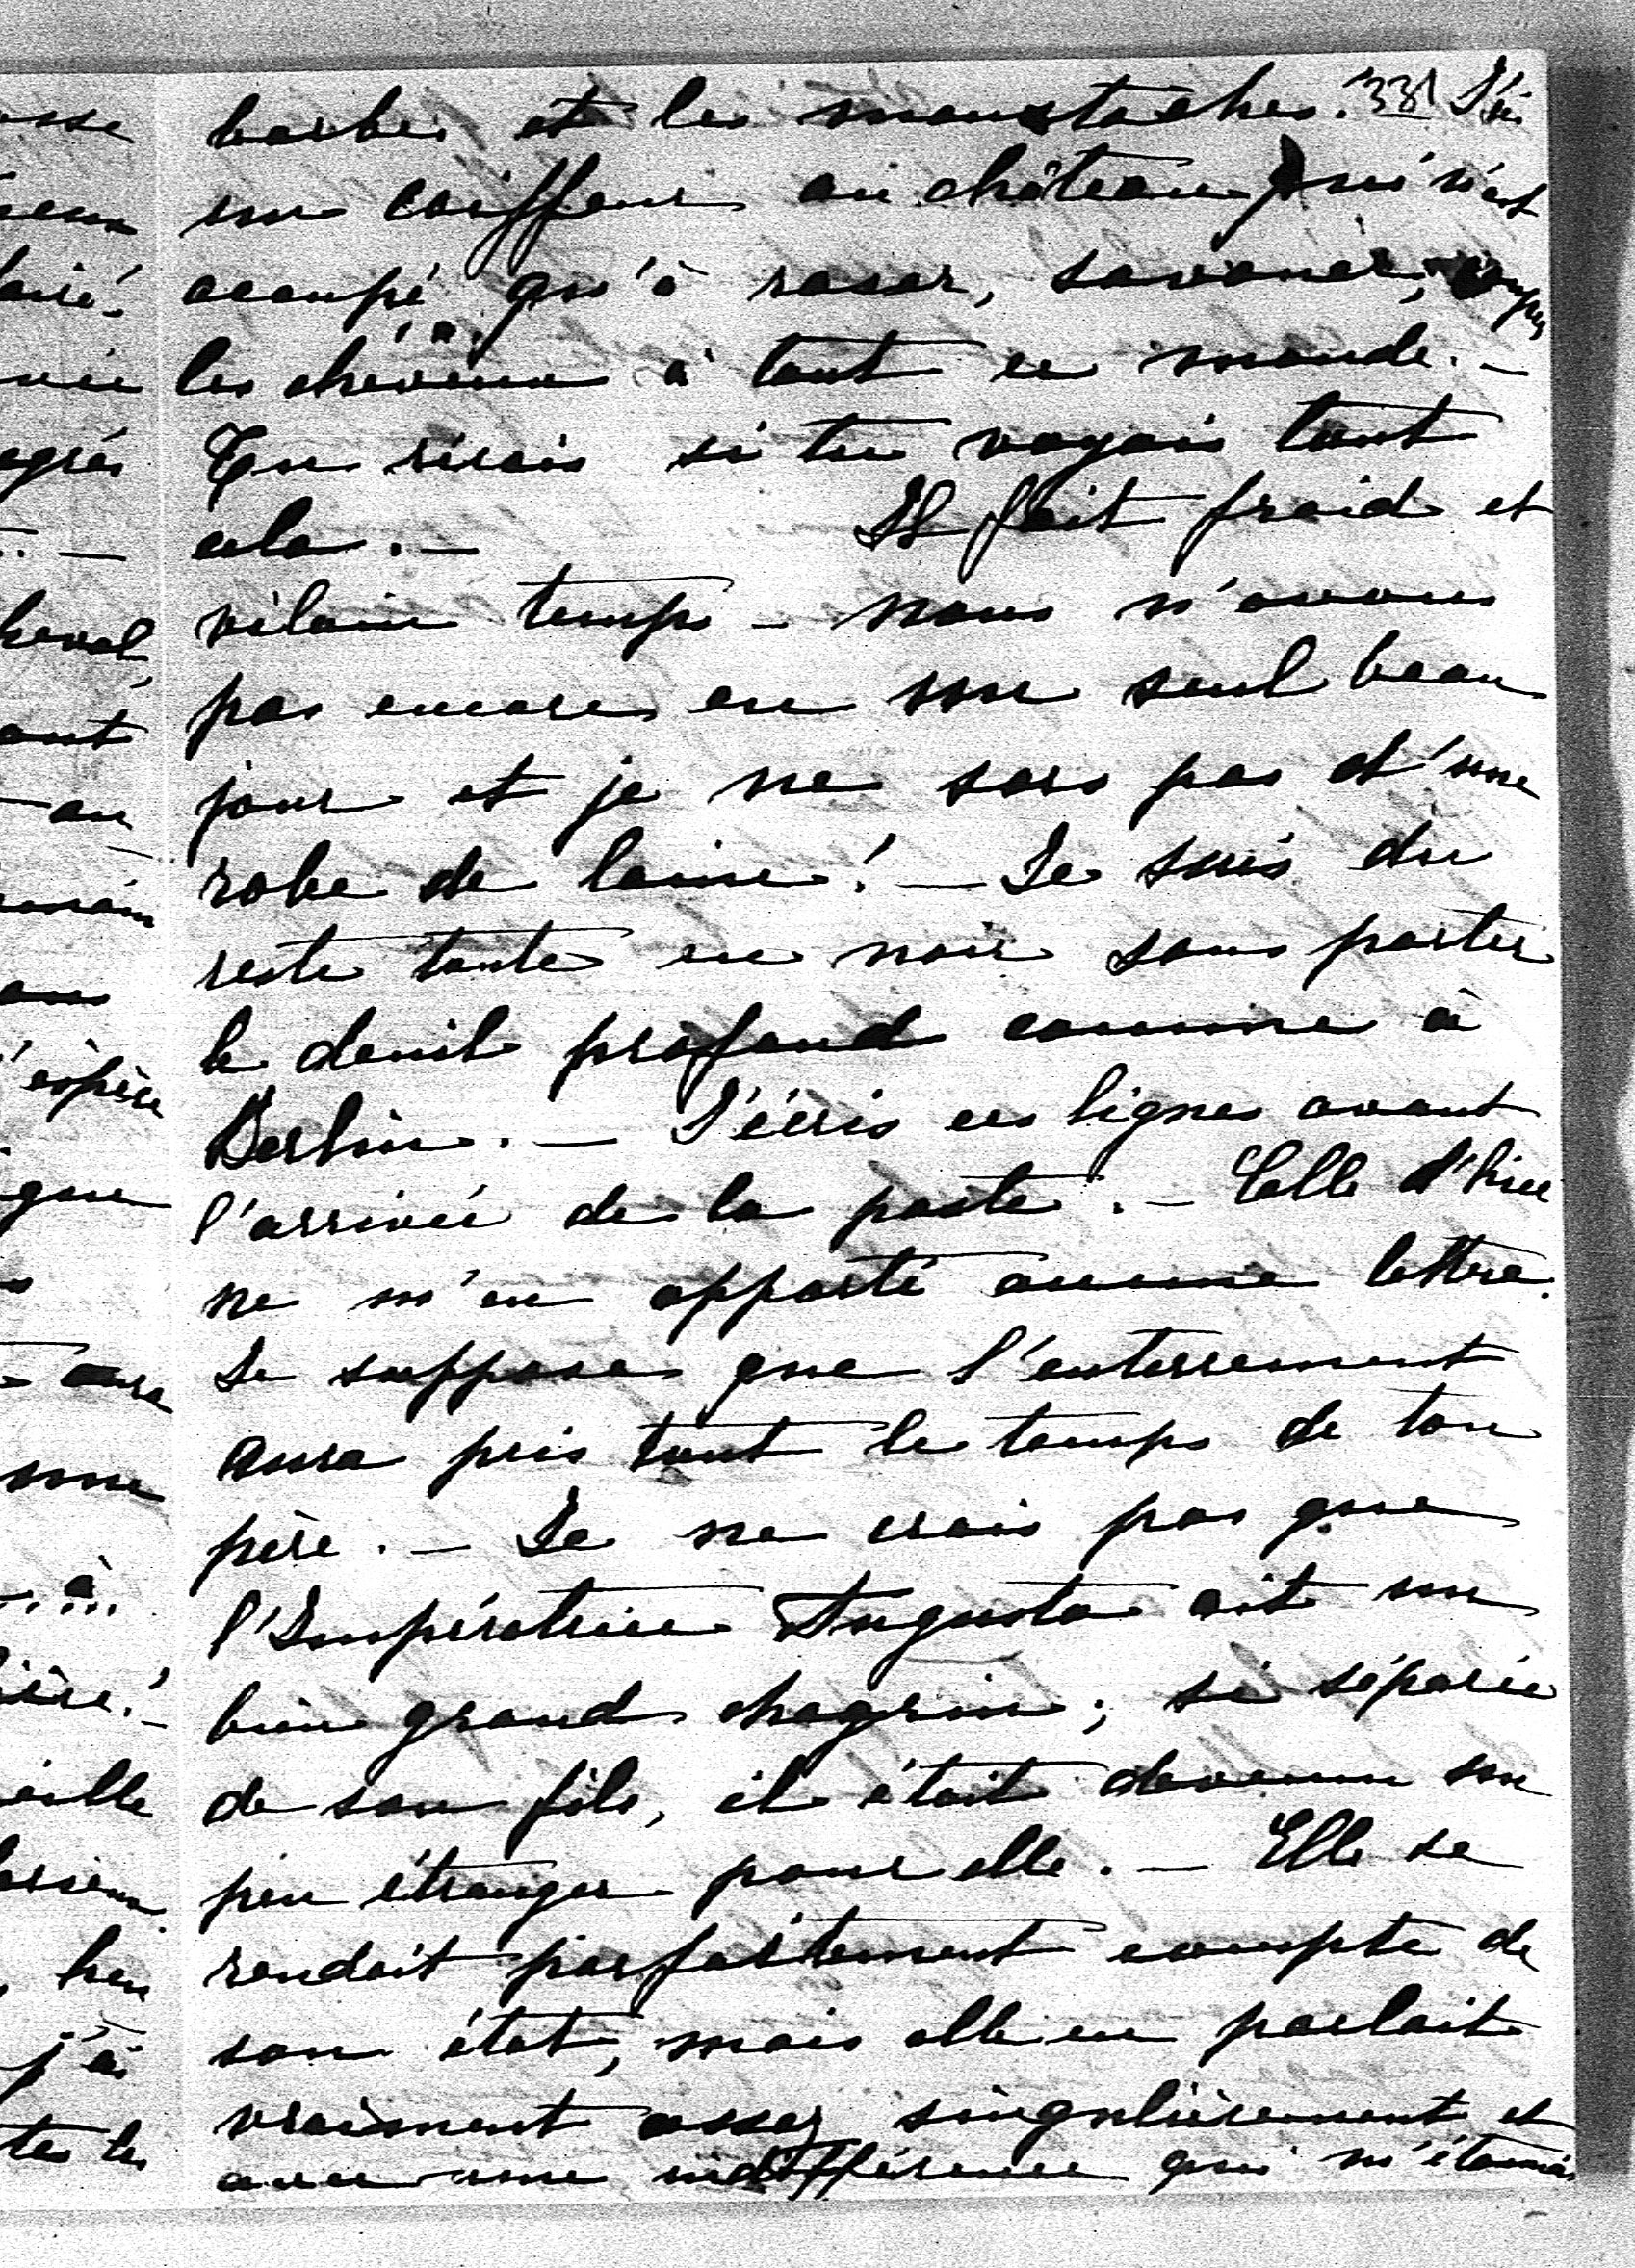 barbes et les moustaches. 331 J'ai
un coiffeur au château qui n'est
ocoupé qu'à raser, savonner, couper
les cheveux à tout ce monde. —
Tu rirais si tu voyais tout
cela. — Il fait froid et
vilain temps — nous n'avons
pas encore eu un seul beau
jour et je ne sors pas d'une
robe de laine! — Je suis du
reste toute en noir sans porter
le deuil profond comme à
Berlin. — J'écris ces lignes avant
l'arrivée de la poste. — Celle d'hier
ne m'a apporté aucune lettre.
Je suppose que l'enterrement
aura pris tout le temps de ton
père. — Je ne crois pas que
l'Impératrice Augusta ait un
bien grand chagrin; si séparée
de son fils, il était devenu un
peu étranger pour elle. — Elle se
rendait parfaitement compte de
son état, mais elle en parlait
vraiment assez singulièrement et
avec une indifférence qui m'étonnait